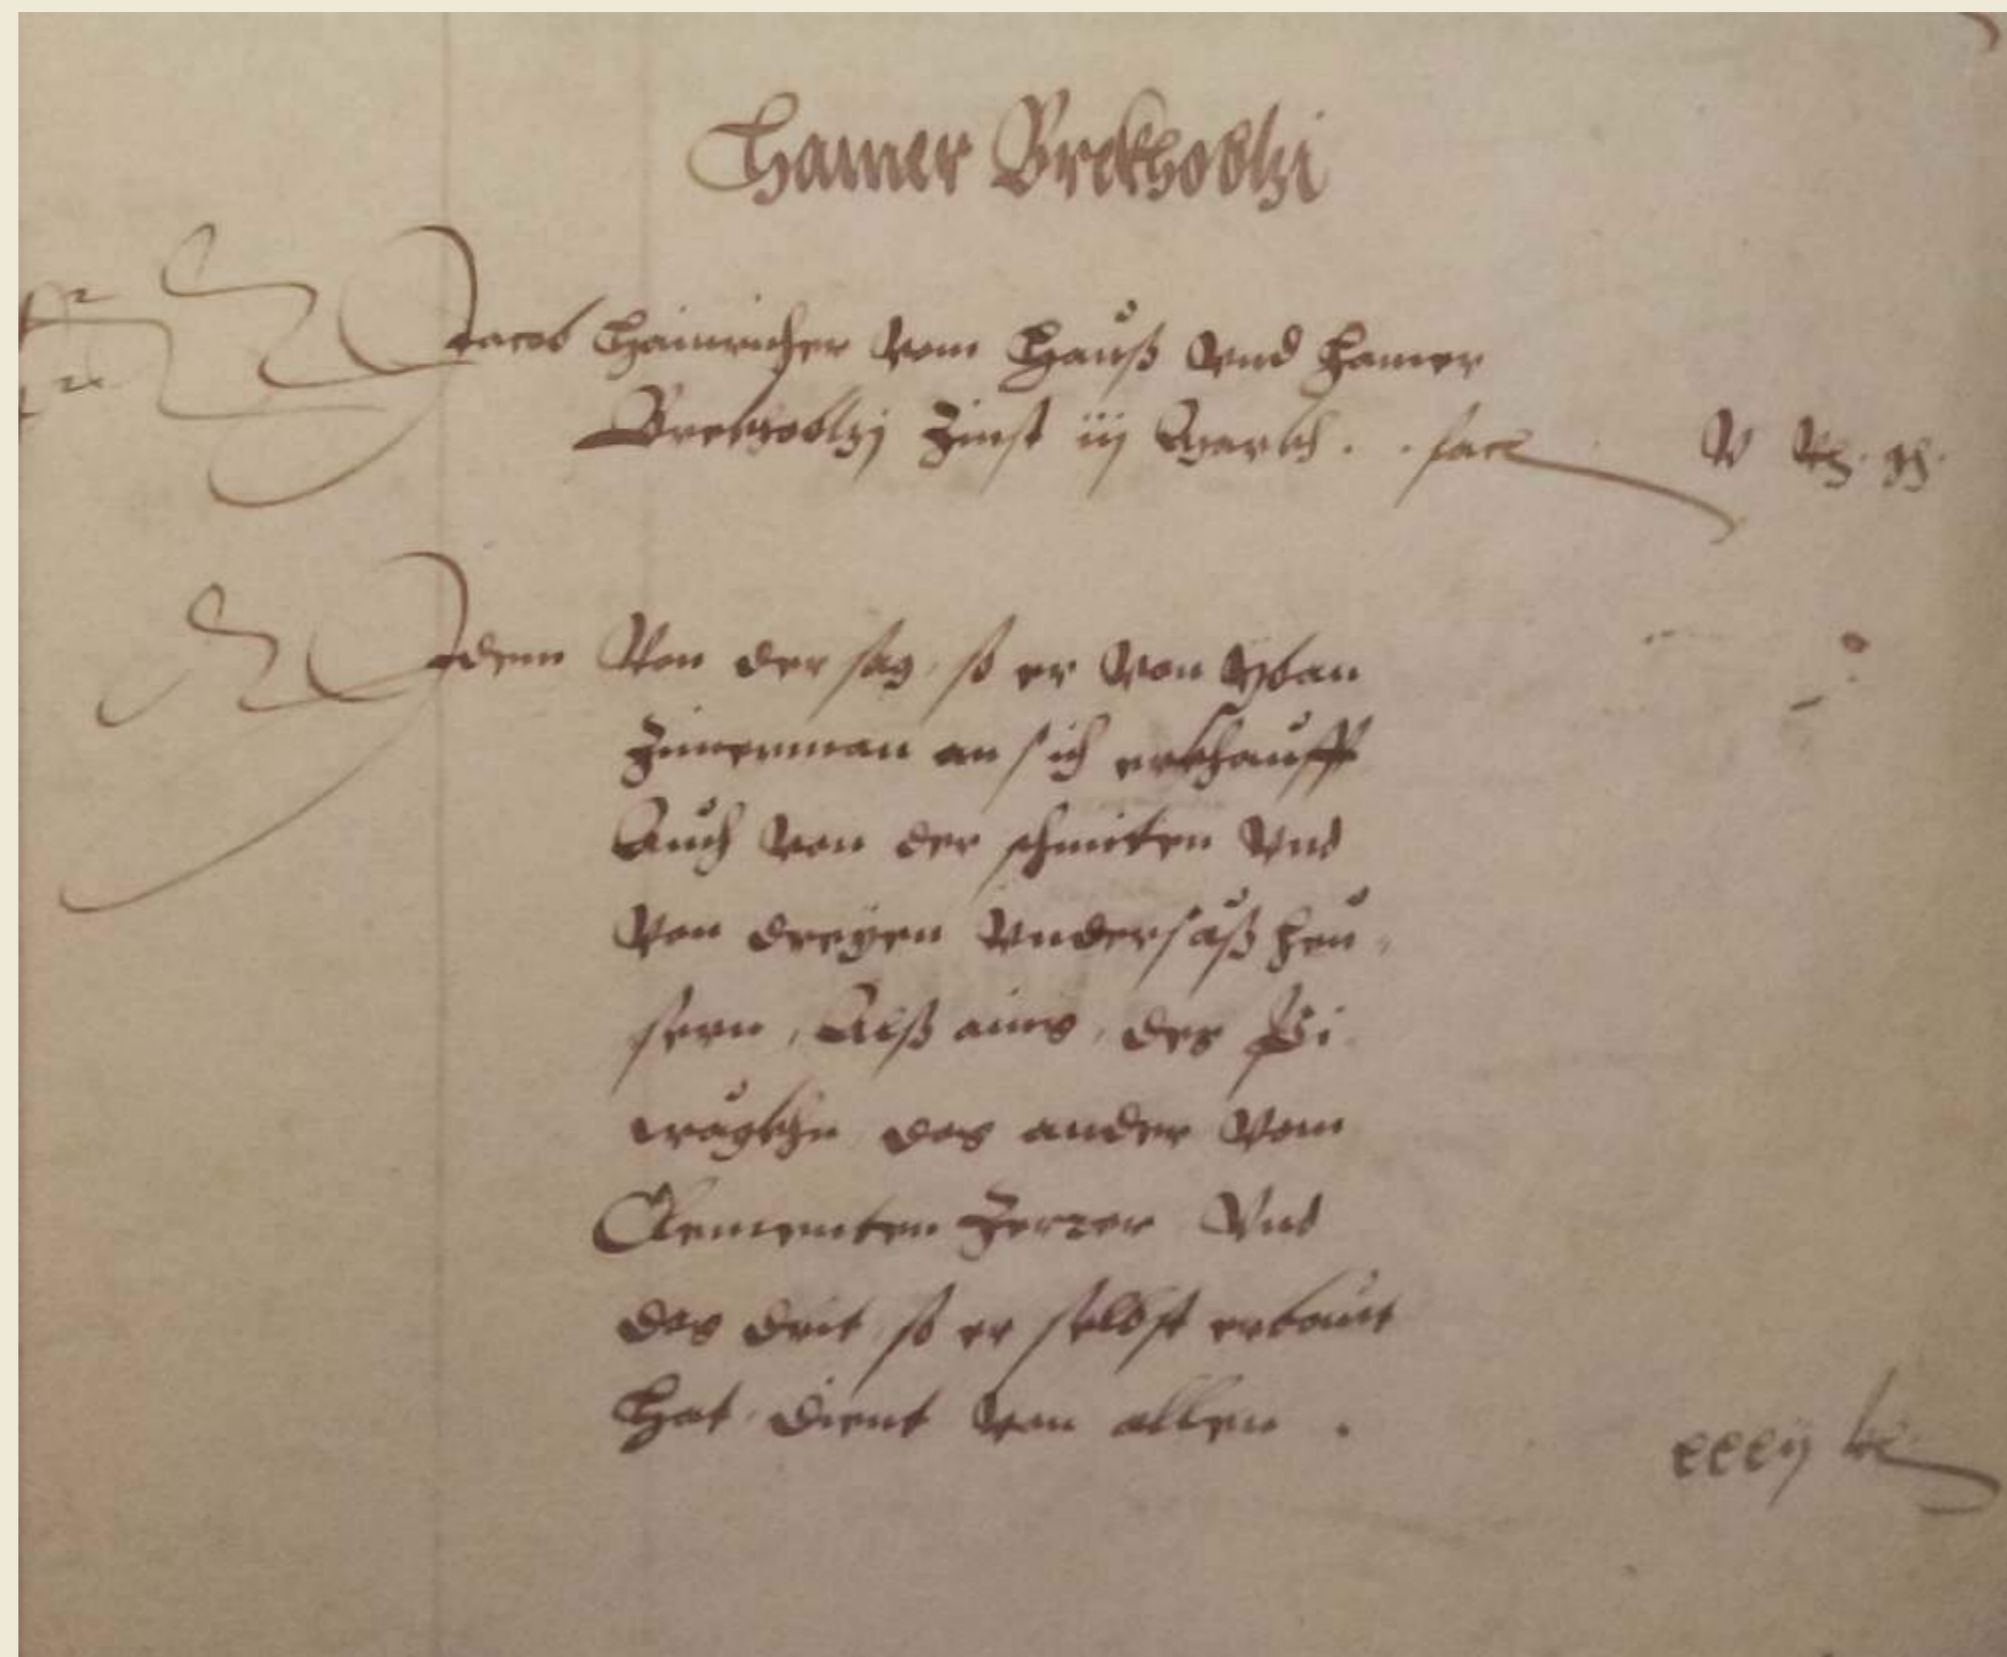 Hamer Prekhoblzi
Jacob Hainricher Vom Hauß Vnd Hamer
Prekhoblzj Zinst iij Markh . . facit
Idem Von der sag, so er Von
Zimerman an sich erkhaufft
Auch Von der schmiten Vnd
Von dreyen Vndersäß heu-
sern, Alß ains, des Pi
das ander Vom
Clementen Zerzer Vnd
das drit so er selbst erbaut
Hat, dient Von allen .
xxxij